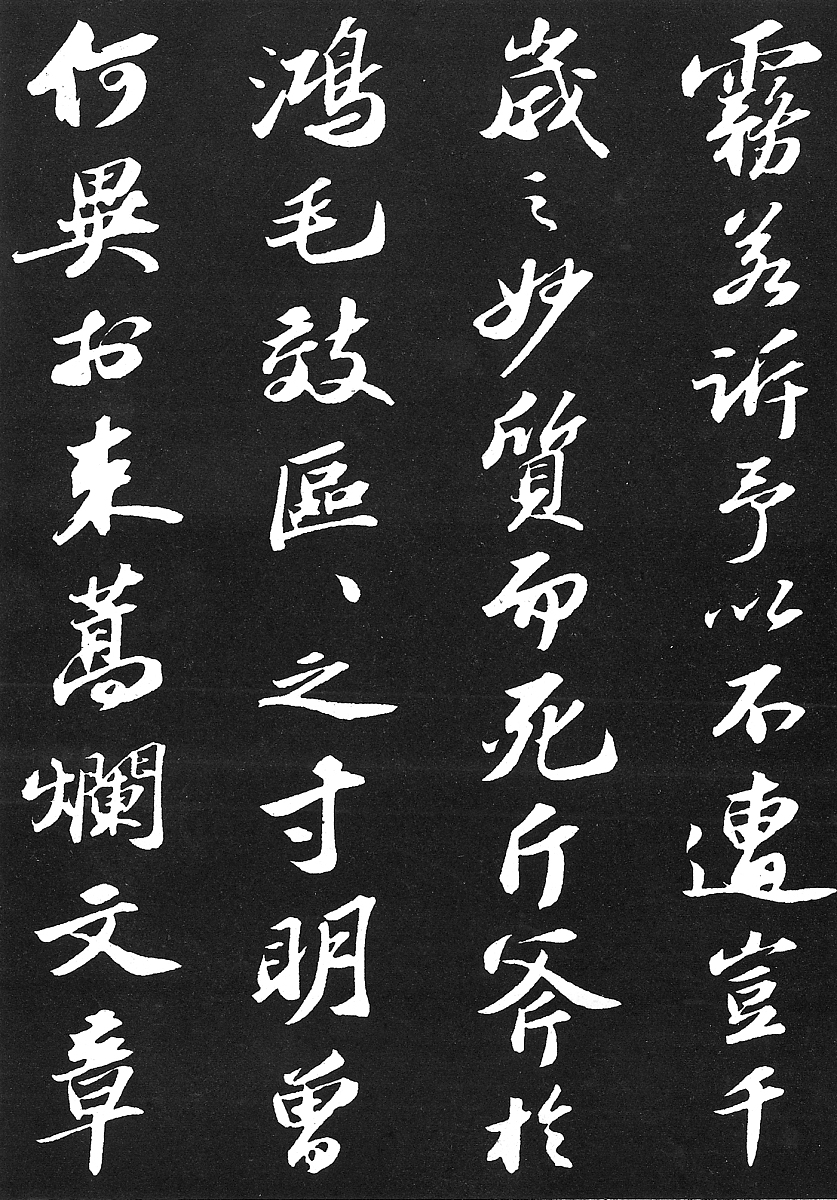 霧若訴予以不遭豈千
歲之妙質而死斤斧於
鴻毛效區、之寸明曾
何異於束蒿爛文章